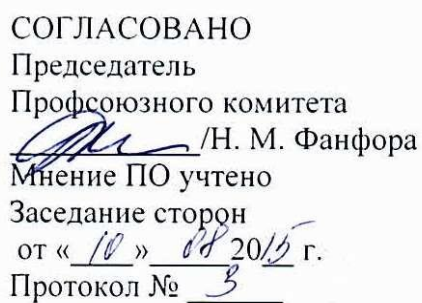 СОГЛАСОВАНО
Председатель
Профсоюзного комитета
/Н. М. Фанфора
Мнение ПО учтено
Заседание сторон
от «10» 08 2015 г.
Протокол № 3